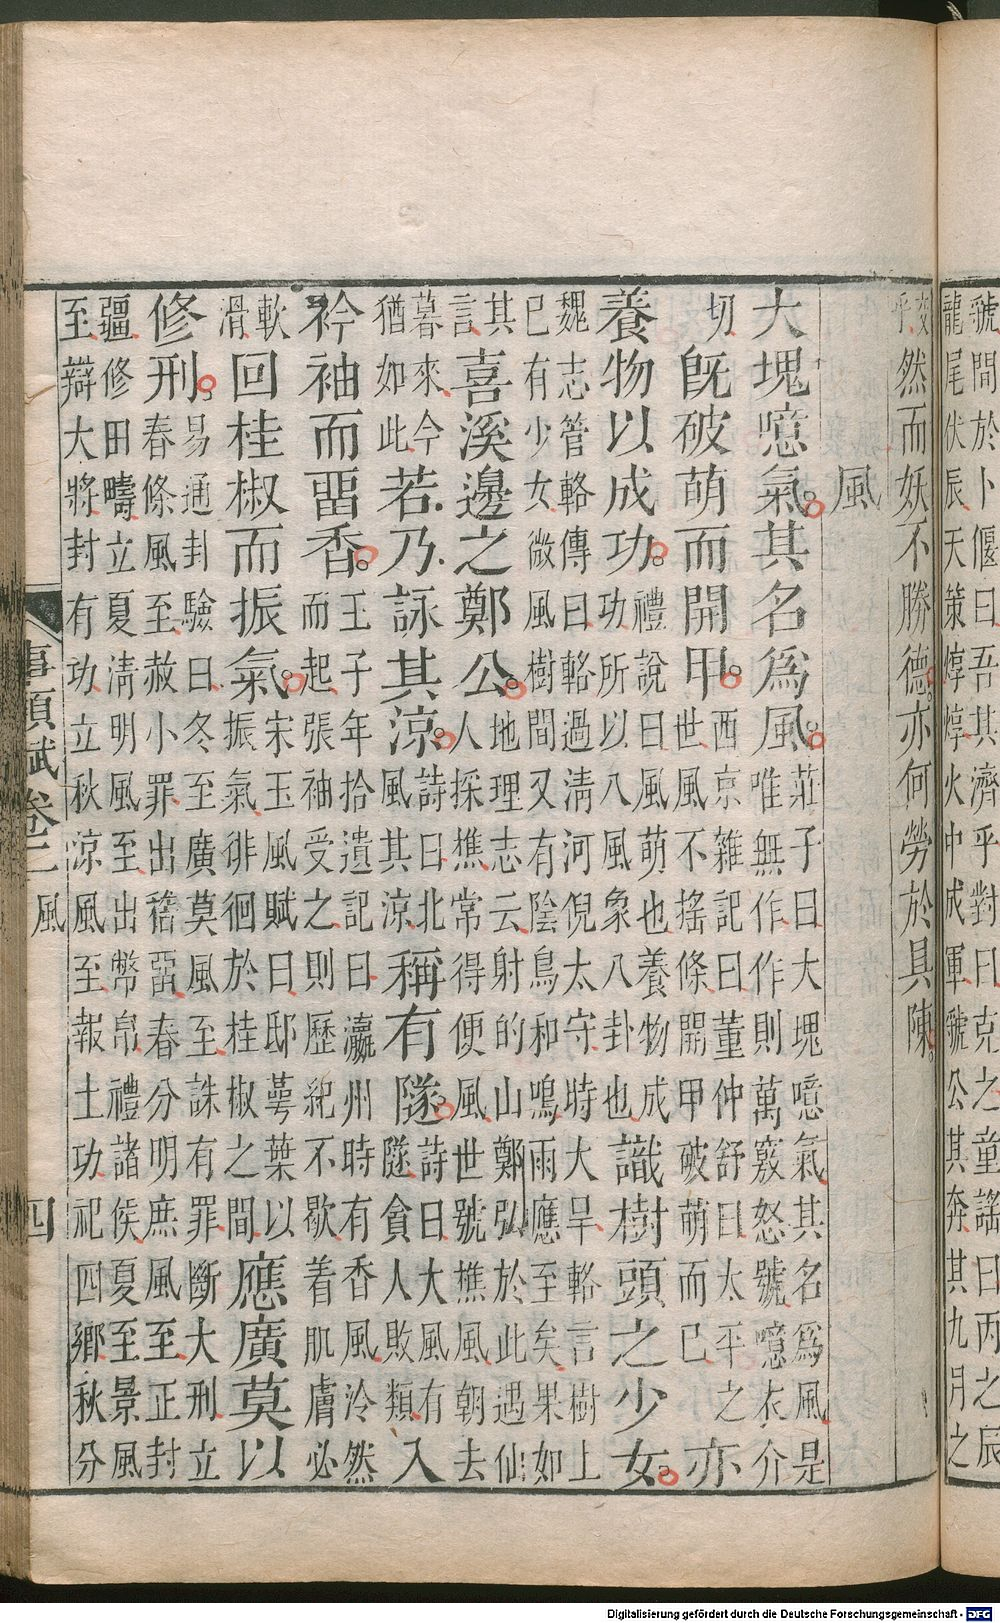 虢問於卜偃曰吾其濟乎對曰克之童謠曰丙之辰
龍尾伏辰天策焞焞火中成軍虢公其奔其九月之
交
乎
然而妖不勝德亦何勞於具陳
風
大塊噫氣其名爲風
莊子曰大塊噫氣其名爲風是
唯無作作則萬竅怒號噫衣介
切
既破萌而開甲
西京雜記曰董仲舒曰太平之
世風不搖條開甲破萌而已
亦
養物以成功
禮說曰風萌也養物成
功所以八風象八卦也
識樹頭之少女
魏志管輅傳曰輅過清河倪太守時大旱輅言樹上
已有少女微風樹間又有陰鳥和鳴雨應至矣果如
其
言
喜溪邊之鄭公
地理志云射的山鄭弘於此遇仙
人採樵常得便風世號樵風朝去
暮來今
猶如此
若乃詠其涼
詩曰北
風其涼
稱有隧
詩曰大風有
隧貪人敗類
入
衿袖而畱香
王子年拾遺記曰瀛州時有香風泠然
而起張袖受之則歷紀不歇着肌膚必
軟
滑
回桂椒而振氣
宋玉風賦曰邸萼葉以
振氣徘徊於桂椒之間
應廣莫以
修刑
易通封驗曰冬至廣莫風至誅有罪斷大刑立
春條風至赦小罪出稽畱春分明庶風至正封
疆修田疇立夏清明風至出幣帛禮諸侯夏至景風
至辯大將封有功立秋涼風至報土功祀四鄉秋分
事類賦卷二 風 四
Digitalisierung gefördert durch die Deutsche Forschungsgemeinschaft - DFG